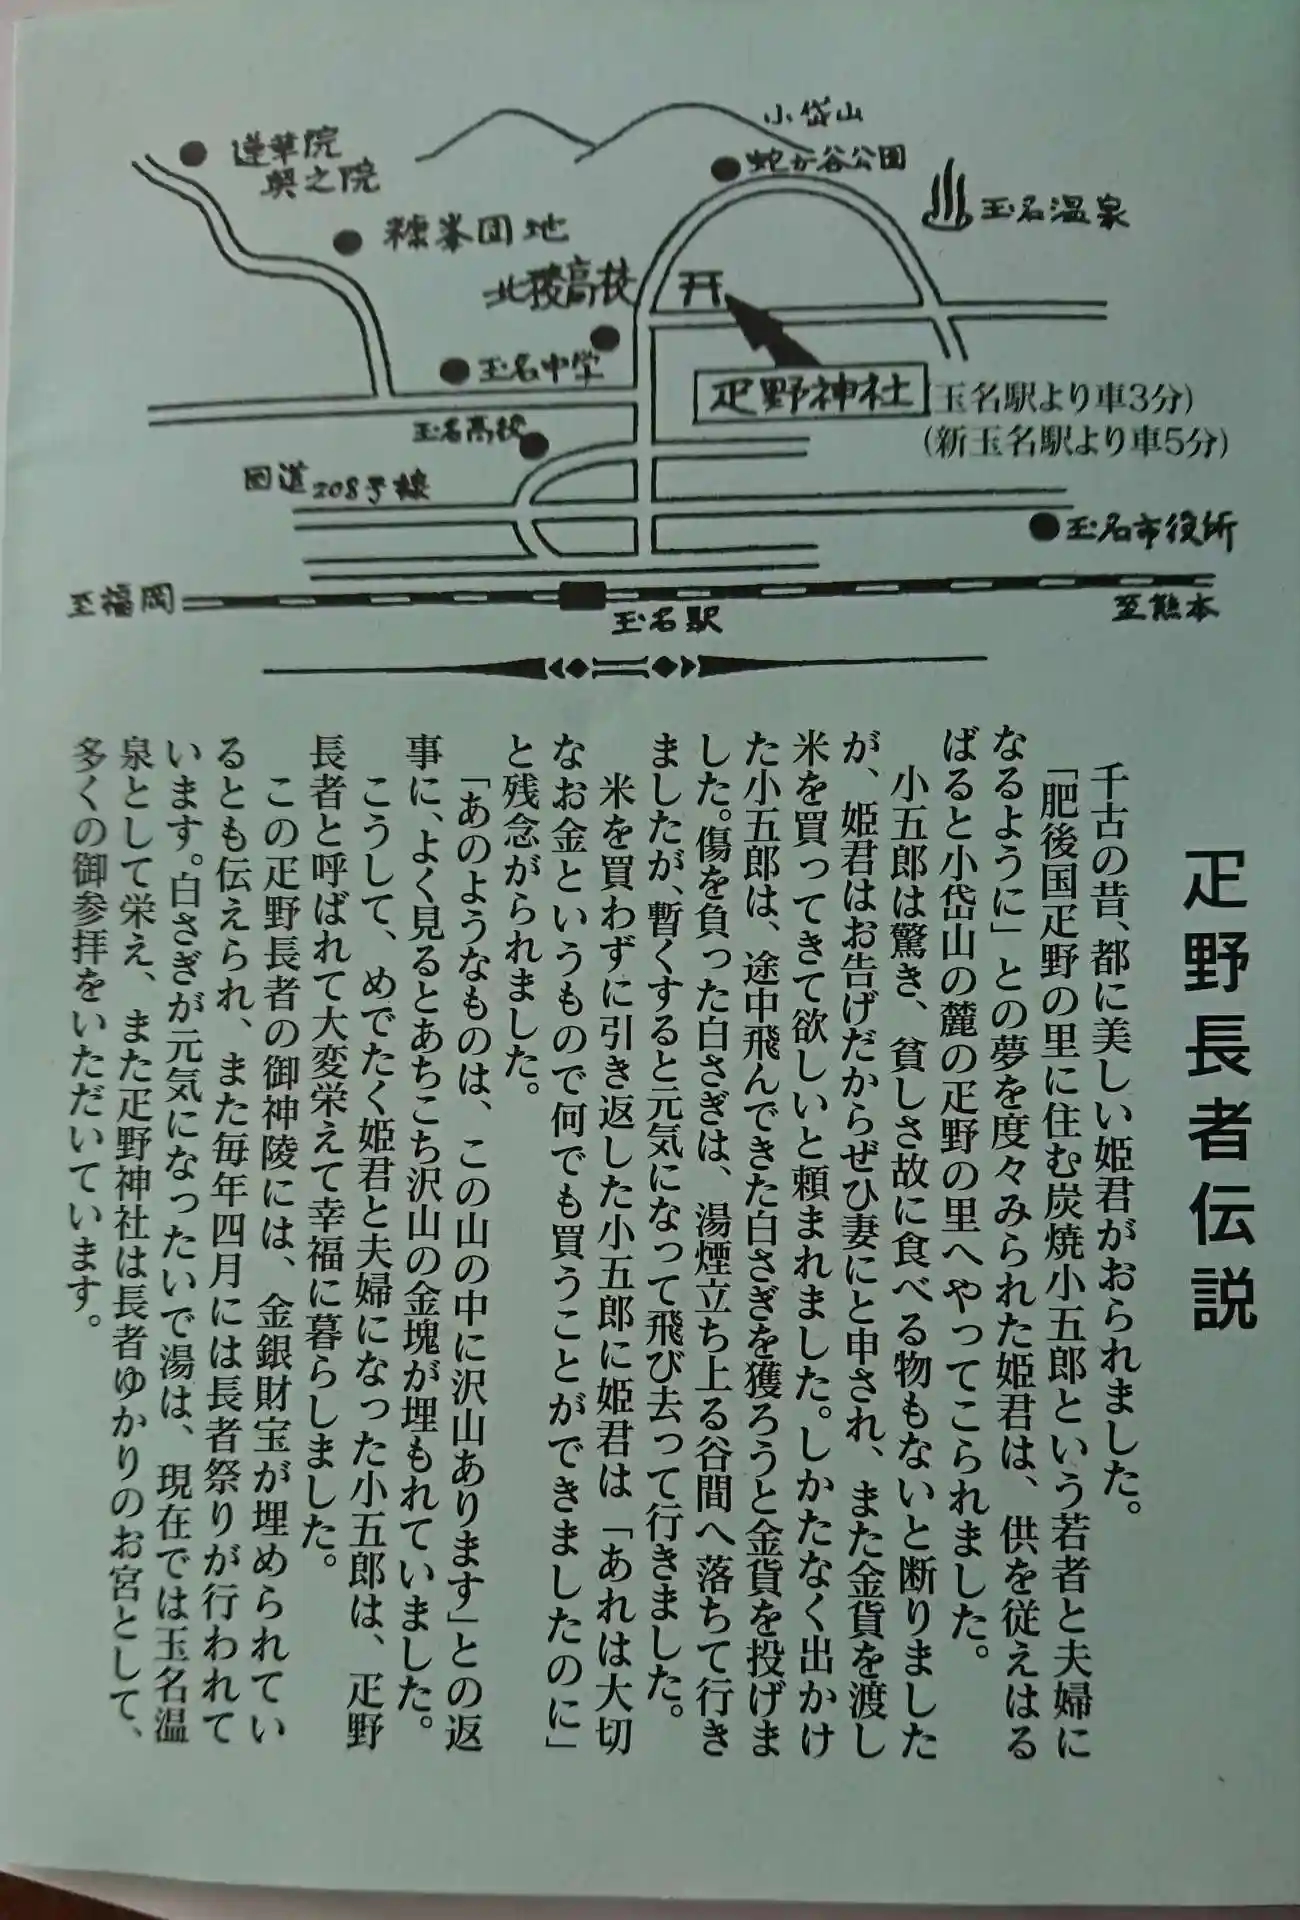 小岱山
蓮華院
奥之院
蛇ヶ谷公園
玉名温泉
糠峯団地
北稜高校
玉名中学
疋野神社
(玉名駅より車3分)
(新玉名駅より車5分)
玉名高校
国道208号線
玉名市役所
至福岡
玉名駅
至熊本
疋野長者伝説
千古の昔、都に美しい姫君がおられました。
「肥後国疋野の里に住む炭焼小五郎という若者と夫婦に
なるように」との夢を度々みられた姫君は、供を従えはる
ばると小岱山の麓の疋野の里へやってこられました。
小五郎は驚き、貧しさ故に食べる物もないと断りました
が、姫君はお告げだからぜひ妻にと申され、また金貨を渡し
米を買ってきて欲しいと頼まれました。しかたなく出かけ
た小五郎は、途中飛んできた白さぎを獲ろうと金貨を投げま
した。傷を負った白さぎは、湯煙立ち上る谷間へ落ちて行き
ましたが、暫くすると元気になって飛び去って行きました。
米を買わずに引き返した小五郎に姫君は「あれは大切
なお金というもので何でも買うことができましたのに」
と残念がられました。
「あのようなものは、この山の中に沢山あります」との返
事に、よく見るとあちこち沢山の金塊が埋もれていました。
こうして、めでたく姫君と夫婦になった小五郎は、疋野
長者と呼ばれて大変栄えて幸福に暮らしました。
この疋野長者の御神陵には、金銀財宝が埋められてい
るとも伝えられ、また毎年四月には長者祭りが行われて
います。白さぎが元気になったいで湯は、現在では玉名温
泉として栄え、また疋野神社は長者ゆかりのお宮として、
多くの御参拝をいただいています。